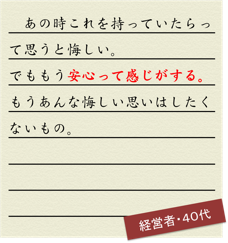 あの時これを持っていたらっ
て思うと悔しい。
でももう安心って感じがする。
もうあんな悔しい思いはしたく
ないもの。
経営者・40代